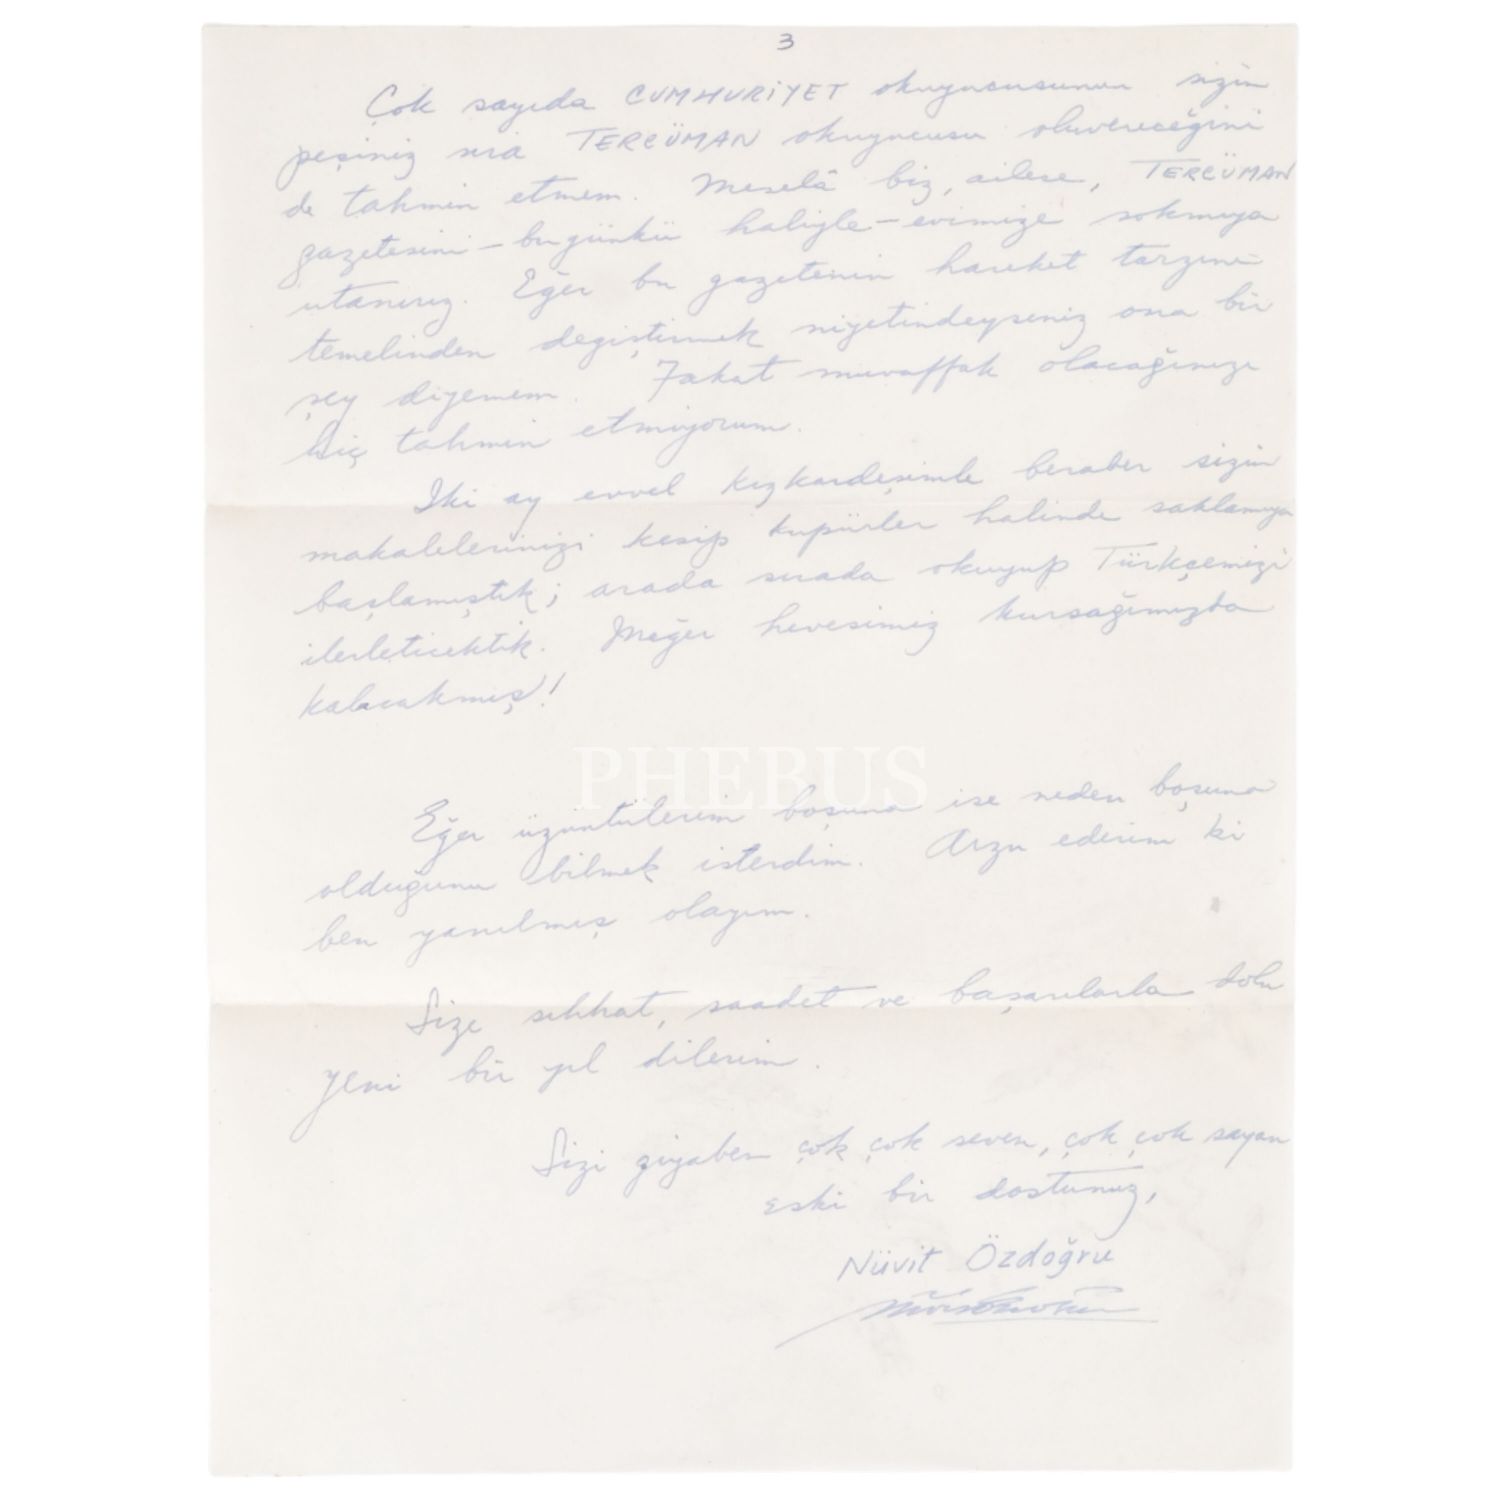 3
Çok sayıda CUMHURİYET okuyucusunun sizin
peşiniz sıra TERCÜMAN okuyucusu oluvereceğini
de tahmin etmem. Meselâ biz, ailece, TERCÜMAN
gazetesini - bugünkü haliyle - evimize sokmıya
utanırız. Eğer bu gazetenin hareket tarzını
temelinden değiştirmek niyetindeyseniz ona bir
şey diyemem. Fakat muvaffak olacağınızı
hiç tahmin etmiyorum.
İki ay evvel kızkardeşimle beraber sizin
makalelerinizi kesip kupürler halinde saklamıya
başlamıştık; arada sırada okuyup Türkçemizi
ilerletecektik. Meğer hevesimiz kursağımızda
kalacakmış!
PHEBUS
Eğer üzüntülerim boşuna ise neden boşuna
olduğunu bilmek isterdim. Arzu ederim ki
ben yanılmış olayım.
Size sıhhat, saadet ve başarılarla dolu
yeni bir yıl dilerim.
Sizi ziyaben çok çok seven, çok çok sayan
eski bir dostunuz,
Nüvit Özdoğru